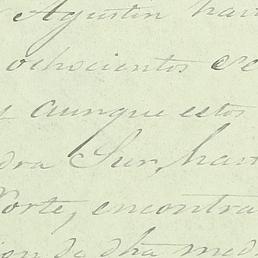 Agustin hav
ochocientos se
y aunque estos
dra Sur, hav
orte, encontra
ion de dha med